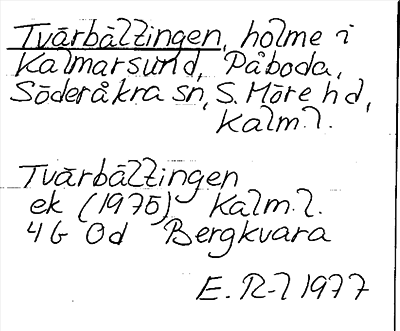 Tvärbältingen, holme i
Kalmarsund, Påboda,
Söderåkra sn, S. Möre hd,
Kalm. l.
Tvärbältingen
ek (1975) Kalm. l.
4 G 0d Bergkvara
E. R-l 1977